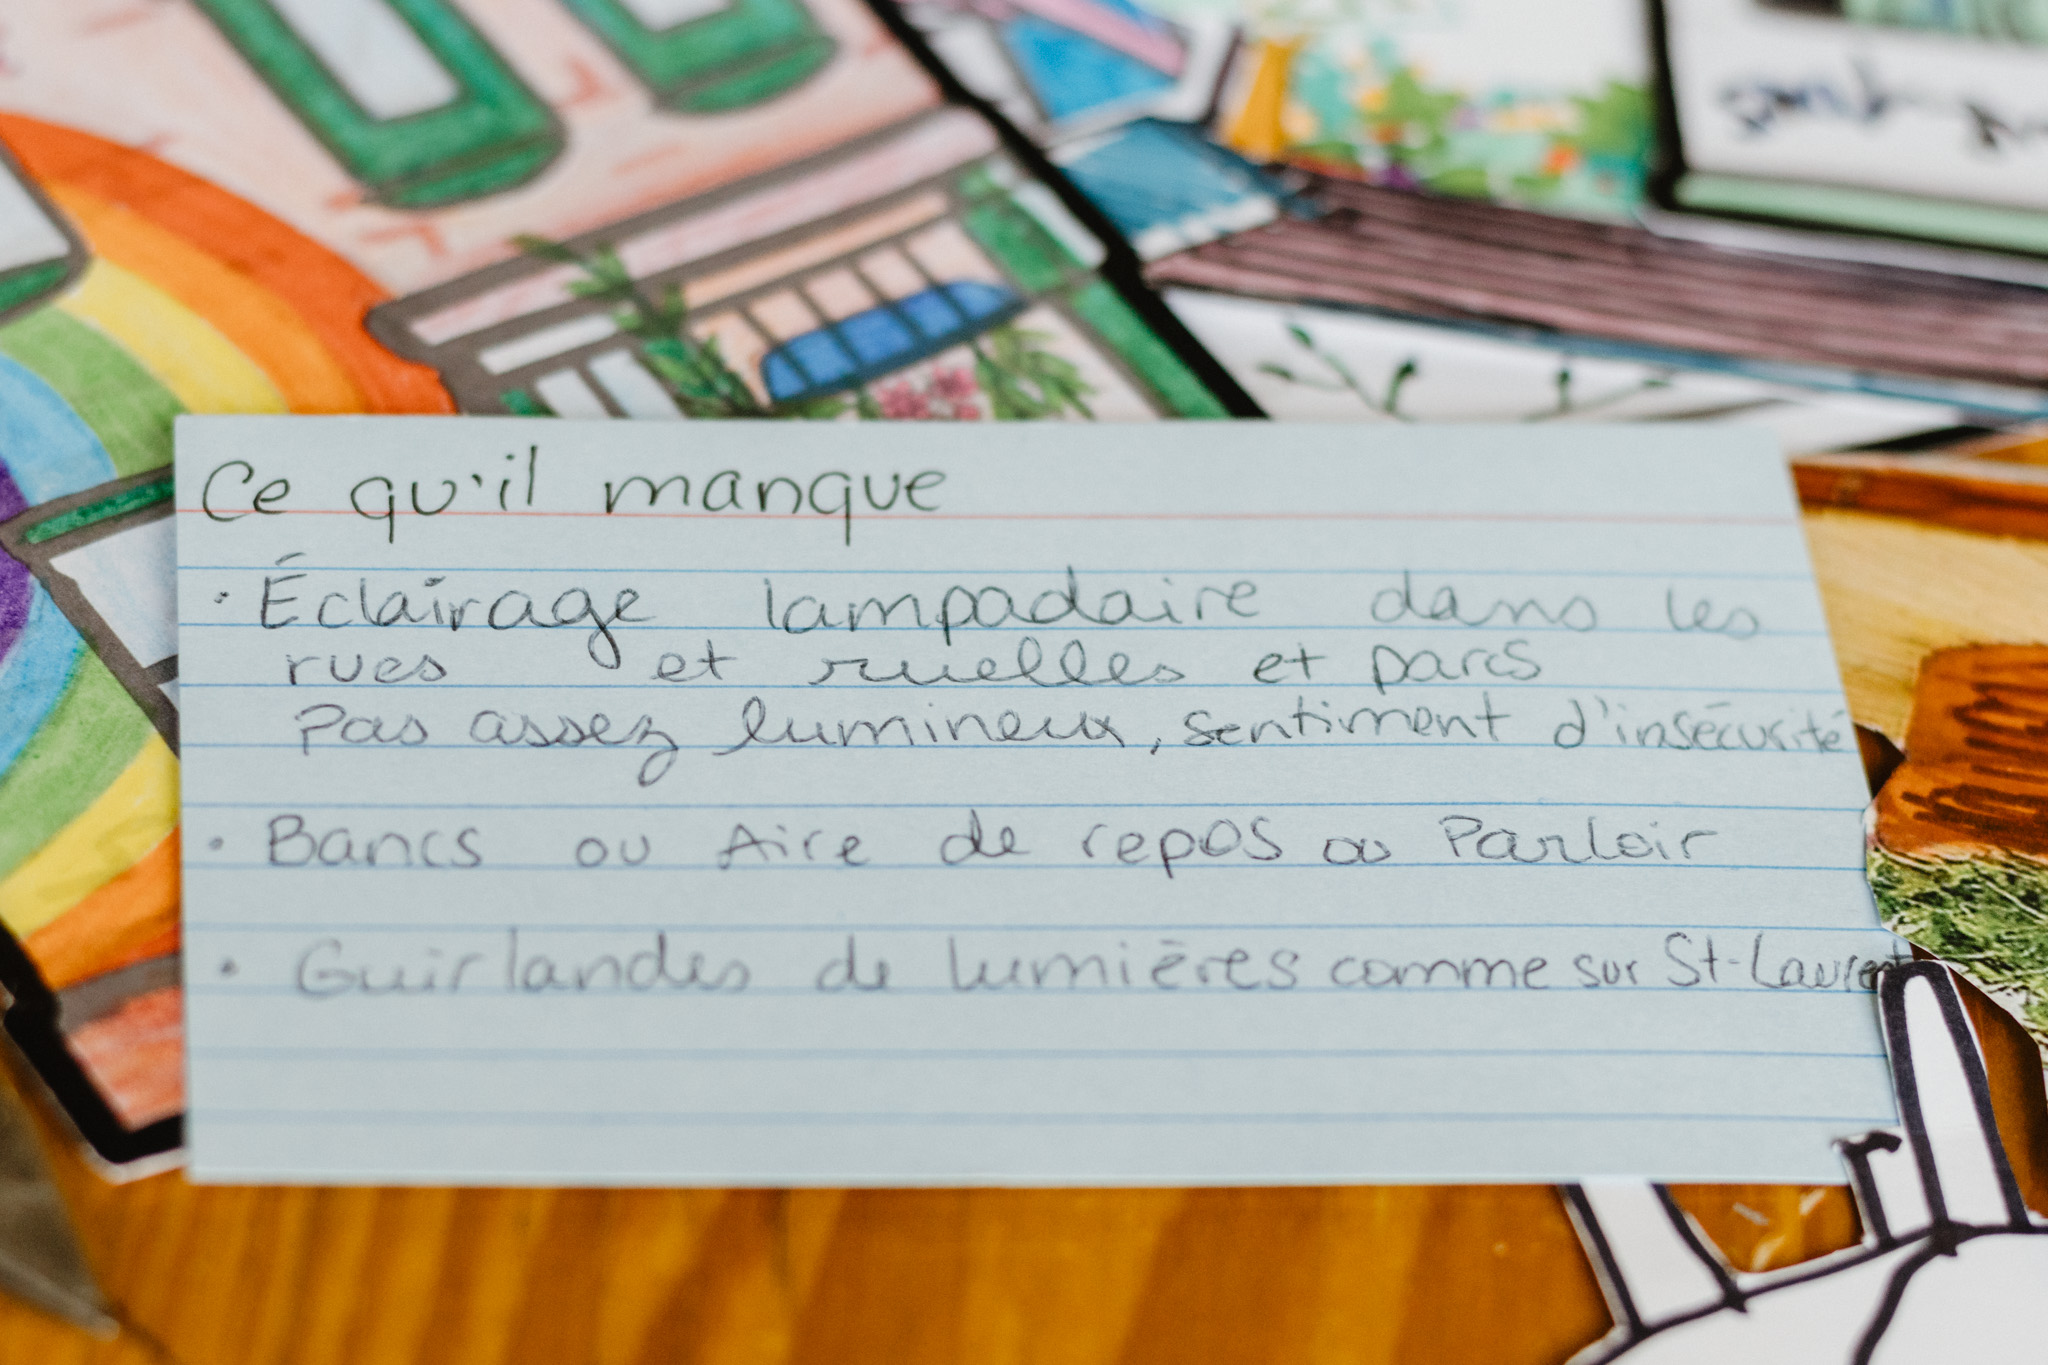 Ce qu'il manque
• Éclairage lampadaire dans les
rues et ruelles et parcs
Pas assez lumineux, sentiment d'insécurité
• Bancs ou Aire de repos ou Parloir
• Guirlandes de lumières comme sur St-Laurent